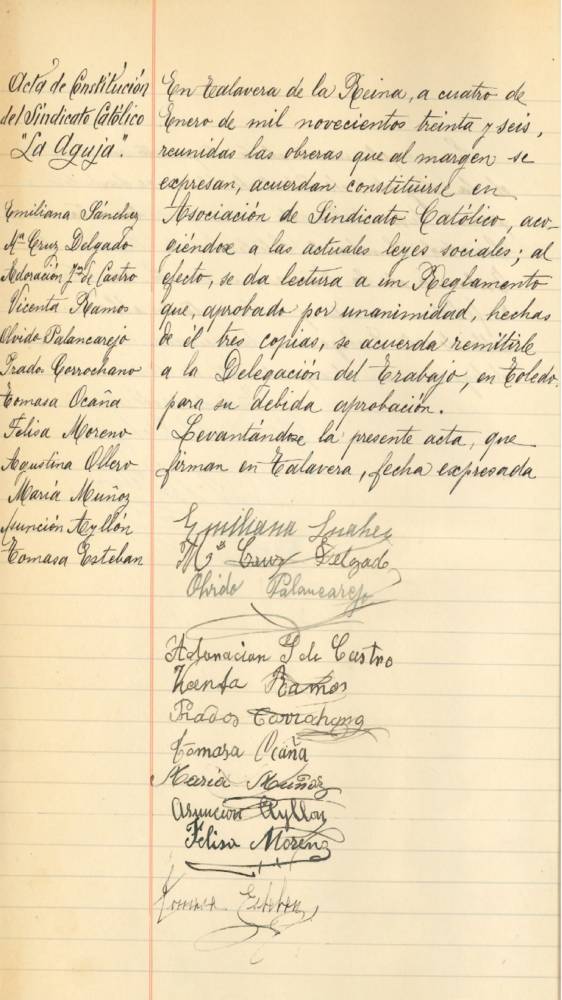 Acta de Constitución
del Sindicato Católico
"La Aguja".
Emiliana Sánchez
Mª Cruz Delgado
Adoración Jz de Castro
Vicenta Ramos
Olvido Palancarejo
Prados Corrochano
Tomasa Ocaña
Felisa Moreno
Agustina Ollero
María Muñoz
Asunción Ayllón
Tomasa Esteban
En Talavera de la Reina, a cuatro de
Enero de mil novecientos treinta y seis,
reunidas las obreras que al margen se
expresan, acuerdan constituirse en
Asociación de Sindicato Católico, aco-
giéndose a las actuales leyes sociales; al
efecto, se da lectura a un Reglamento
que, aprobado por unanimidad, hechas
de él tres copias, se acuerda remitirle
a la Delegación del Trabajo, en Toledo,
para su debida aprobación.
Levantándose la presente acta, que
firman en Talavera, fecha expresada
Emiliana Sanhez
Mª Cruz Delgado
Olvido Palancarejo
Adoracion J de Castro
Vicenta Ramos
Prados Corrochano
Tomasa Ocaña
María Muñoz
Asuncion Ayllon
Felisa Moreno
Tomasa Esteban